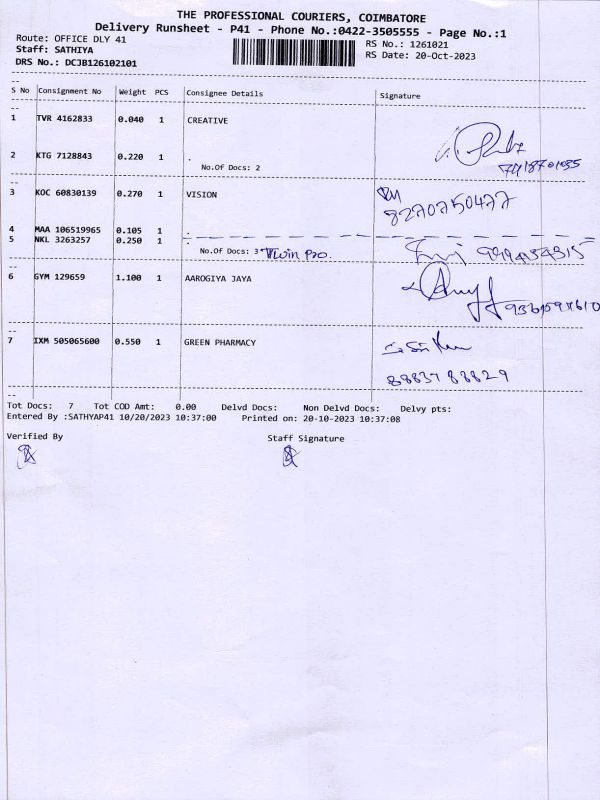 THE PROFESSIONAL COURIERS, COIMBATORE
Delivery Runsheet - P41 - Phone No.:0422-3505555 - Page No.:1
Route: OFFICE DLY 41 RS No.: 1261021
Staff: SATHIYA RS Date: 20-Oct-2023
DRS No.: DCJB126102101
S No Consignment No Weight PCS Consignee Details Signature
1 TVR 4162833 0.040 1 CREATIVE
2 KTG 7128843 0.220 1 .
No.Of Docs: 2
3 KOC 60830139 0.270 1 VISION
8270750477
4 MAA 106519965 0.105 1 .
5 NKL 3263257 0.250 1 .
No.Of Docs: 3 Twin Pro.
6 GYM 129659 1.100 1 AAROGIYA JAYA
7 IXM 505065600 0.550 1 GREEN PHARMACY
8883788829
Tot Docs: 7 Tot COD Amt: 0.00 Delvd Docs: Non Delvd Docs: Delvy pts:
Entered By :SATHYAP41 10/20/2023 10:37:00 Printed on: 20-10-2023 10:37:08
Verified By Staff Signature